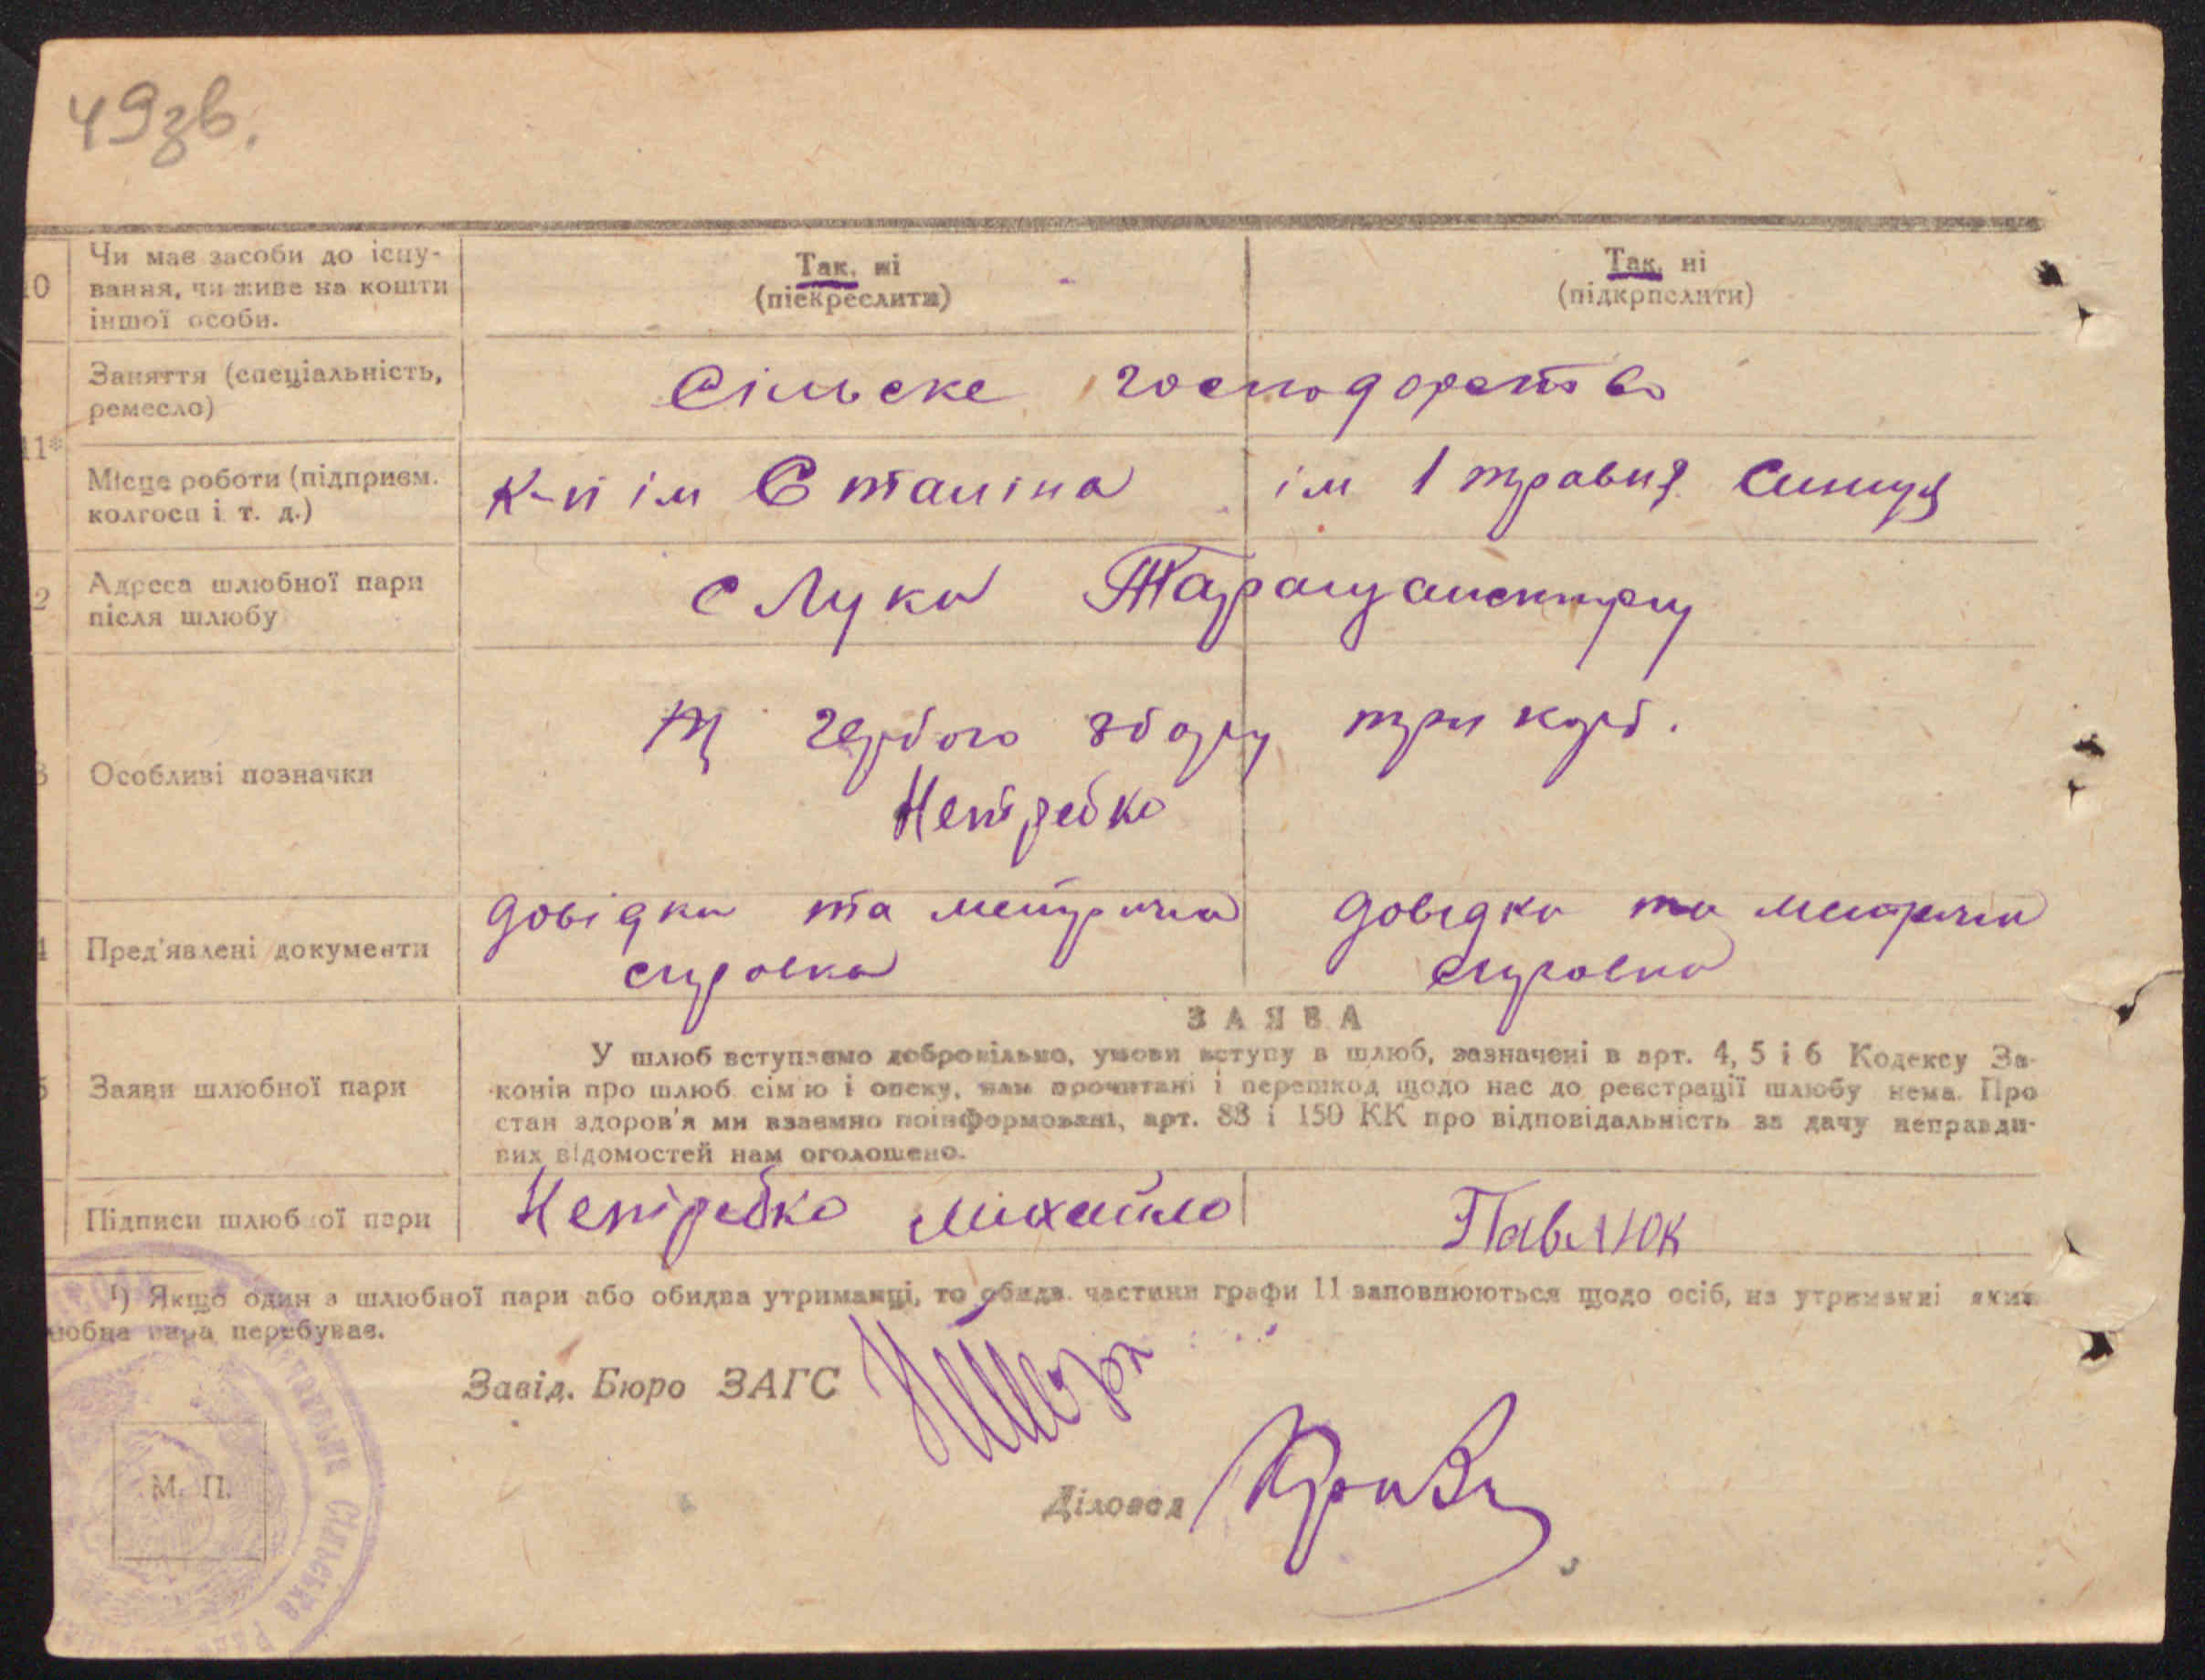 49зв.
10 Чи має засоби до існу-
вання, чи живе на кошти
іншої особи.
Так, ні
(піекреслити)
Так, ні
(підкрпслити)
11* Заняття (спеціальність,
ремесло)
Сільске господорство
Місце роботи (підприєм.
колгосп і т. д.)
к-п ім Сталіна
ім 1 травня Синиця
2 Адреса шлюбної пари
після шлюбу
с Лука
3 Особливі позначки
гербого збору три карб.
Непіребко
4 Пред'явлені документи
довідка та метрична
справка
довідка та метрична
справка
ЗАЯВА
5 Заяви шлюбної пари
У шлюб вступаємо добровільно, умови вступу в шлюб, зазначені в арт. 4, 5 і 6 Кодексу За-
конів про шлюб сім'ю і опеку, нам прочитані і перешкод щодо нас до реєстрації шлюбу нема. Про
стан здоров'я ми взаємно поінформовані, арт. 88 і 150 КК про відповідальність за дачу неправди-
вих відомостей нам оголошено.
Підписи шлюбної пари
Непіребко Михайло
Павлюк
¹) Якщо один з шлюбної пари або обидва утриманці, то обидв. частини графи 11 заповнюються щодо осіб, на утриманні яких
юбна пара перебуває.
Завід. Бюро ЗАГС
Діловод
М. П.
Сільська Рада